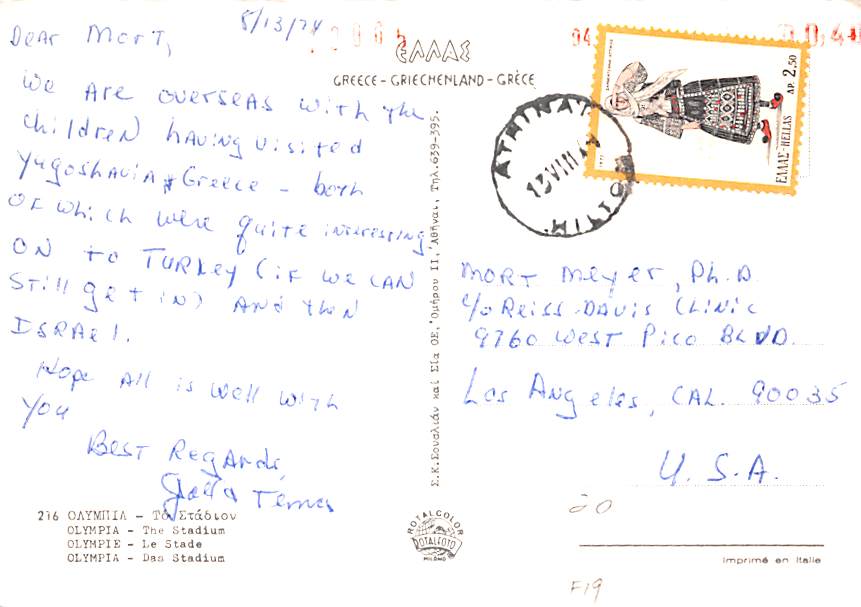 8/13/74
Dear Mort,
We are overseas with the
children having visited
Yugoshavia & Greece - both
of which were quite interesting
on to Turkey (if we can
still get in) and then
Israel.
Hope all is well with
you
Best Regards,
216 ΟΛΥΜΠΙΑ - Τὸ Στάδιον
OLYMPIA - The Stadium
OLYMPIE - Le Stade
OLYMPIA - Das Stadium
ΕΛΛΑΣ
GREECE - GRIECHENLAND - GRÈCE
Σ.Κ.Σουσλιάν καί Σία ΟΕ, Ὁμήρου 11, Ἀθῆναι, Τηλ.639-395.
ROTALCOLOR
ROTALFOTO
MILANO
04
ΔΡ. 2,50
ΕΛΛΑΣ-HELLAS
ATHINAI
13 VIII 74
Mort Meyer, Ph.D.
c/o Reiss-Davis Clinic
9760 West Pico Blvd.
Los Angeles, Cal. 90035
U.S.A.
20
Imprimé en Italie
F19